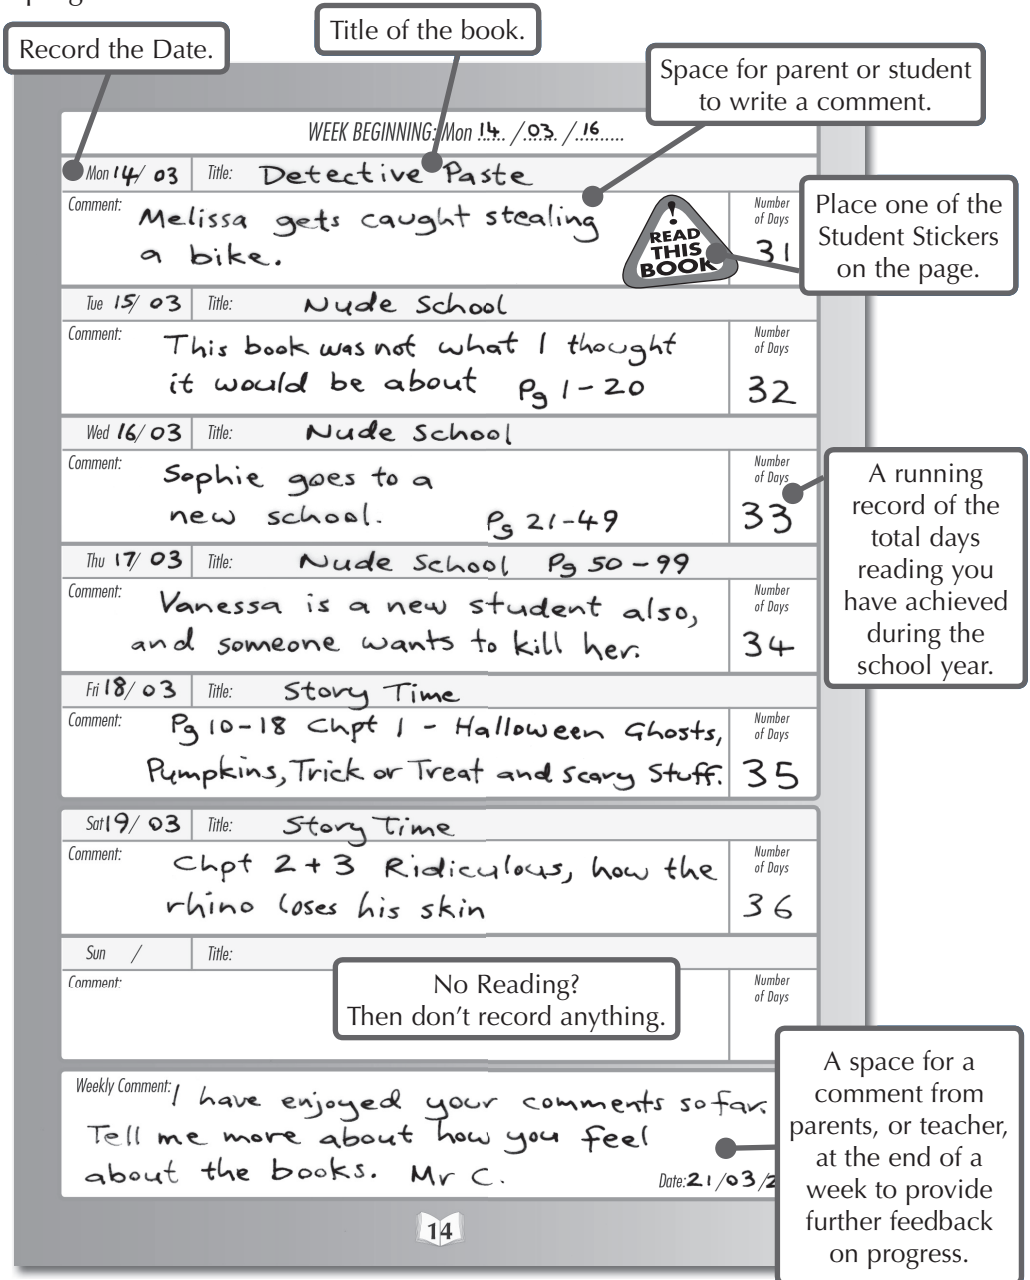 Record the Date.
Title of the book.
Space for parent or student
to write a comment.
WEEK BEGINNING: Mon 14 / 03 / 16
Mon 14/ 03 Title: Detective Paste
Comment: Melissa gets caught stealing
a bike.
! READ
THIS
BOOK
Number
of Days
31
Place one of the
Student Stickers
on the page.
Tue 15/ 03 Title: Nude School
Comment: This book was not what I thought
it would be about Pg 1-20
Number
of Days
32
Wed 16/ 03 Title: Nude School
Comment: Sophie goes to a
new school. Pg 21-49
Number
of Days
33
A running
record of the
total days
reading you
have achieved
during the
school year.
Thu 17/ 03 Title: Nude School Pg 50-99
Comment: Vanessa is a new student also,
and someone wants to kill her.
Number
of Days
34
Fri 18/ 03 Title: Story Time
Comment: Pg 10-18 Chpt 1 - Halloween Ghosts,
Pumpkins, Trick or Treat and scary Stuff.
Number
of Days
35
Sat 19/ 03 Title: Story Time
Comment: Chpt 2 + 3 Ridiculous, how the
rhino loses his skin
Number
of Days
36
Sun / Title:
Comment:
Number
of Days
No Reading?
Then don't record anything.
Weekly Comment: I have enjoyed your comments so far.
Tell me more about how you feel
about the books. Mr C.
Date: 21/03/2
A space for a
comment from
parents, or teacher,
at the end of a
week to provide
further feedback
on progress.
14